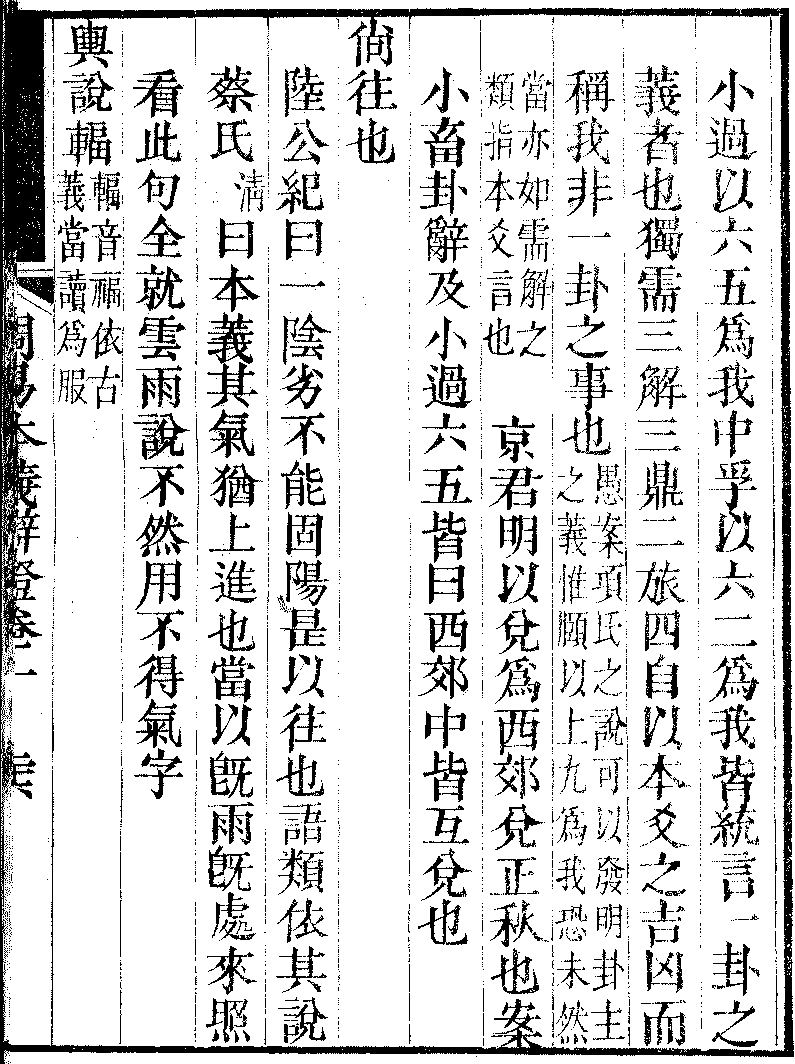 小過以六五爲我中孚以六二爲我皆統言一卦之
義者也獨需三解三鼎二旅四自以本爻之吉凶而
稱我非一卦之事也愚案項氏之說可以發明卦主之義惟頤以上九爲我恐未然
當亦如需解之類指本爻言也　京君明以兌爲西郊兌正秋也案
小畜卦辭及小過六五皆曰西郊中皆互兌也
尙往也
陸公紀曰一陰劣不能固陽是以往也語類依其說
蔡氏清曰本義其氣猶上進也當以旣雨旣處來照
看此句全就雲雨說不然用不得氣字
輿說輻輻音福依古義當讀爲服
周易本義辨證卷一